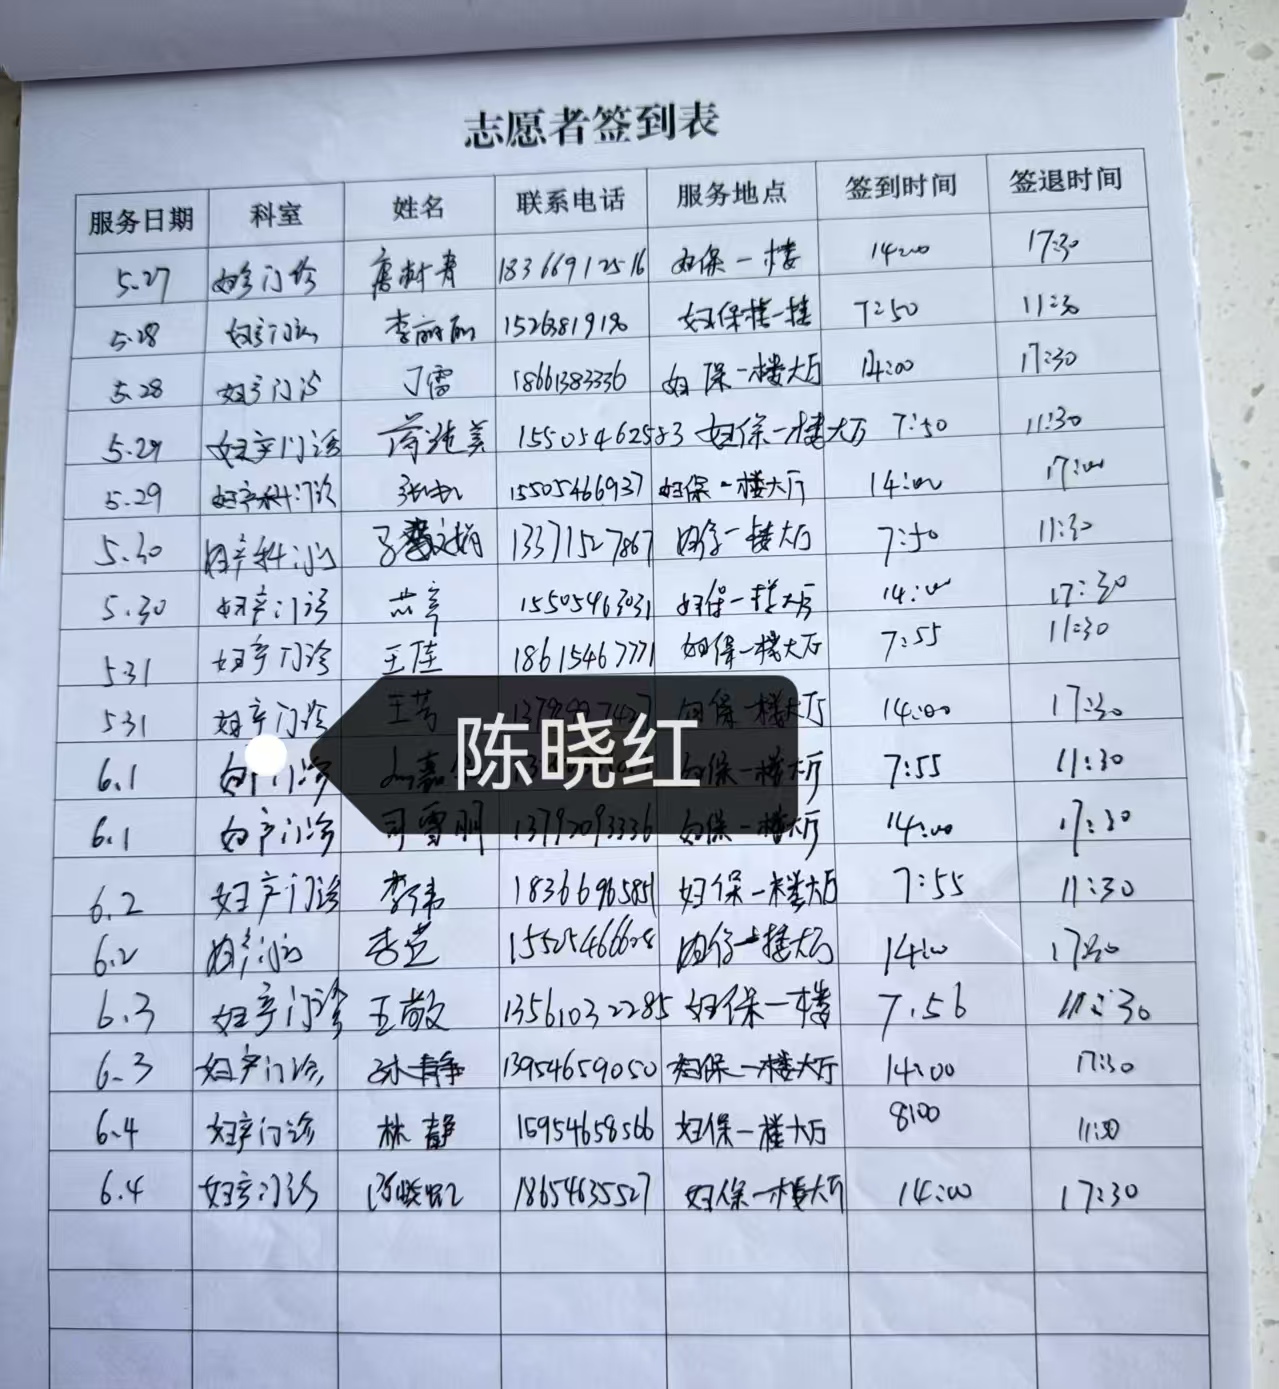 志愿者签到表
服务日期 科室 姓名 联系电话 服务地点 签到时间 签退时间
5.27 妇产门诊 18366912516 妇保一楼 14:00 17:30
5.28 妇产门诊 李丽丽 1526381918 妇保楼一楼 7:50 11:30
5.28 妇产门诊 丁雷 18661383336 妇保一楼大厅 14:00 17:30
5.29 妇产门诊 15505462583 妇保一楼大厅 7:50 11:30
5.29 妇产科门诊 15505466937 妇保一楼大厅 14:00 17:00
5.30 妇产科门诊 13371527867 妇保一楼大厅 7:50 11:30
5.30 妇产门诊 15505463031 妇保一楼大厅 14:00 17:30
5.31 妇产门诊 王佳 18615467771 妇保一楼大厅 7:55 11:30
531 妇产门诊 王芳 妇保一楼大厅 14:00 17:30
陈晓红
6.1 妇产门诊 妇保一楼大厅 7:55 11:30
6.1 妇产门诊 司雪朋 13792093336 妇保一楼大厅 14:00 17:30
6.2 妇产门诊 李伟 18366965851 妇保一楼大厅 7:55 11:30
6.2 妇产门诊 15525466628 妇保一楼大厅 14:00 17:30
6.3 妇产门诊 王敬 13561032285 妇保一楼 7.56 11:30
6.3 妇产门诊 孙静 13954659050 妇保一楼大厅 14:00 17:30
6.4 妇产门诊 林静 15954658566 妇保一楼大厅 8:00 11:30
6.4 妇产门诊 陈晓红 18654635527 妇保一楼大厅 14:00 17:30